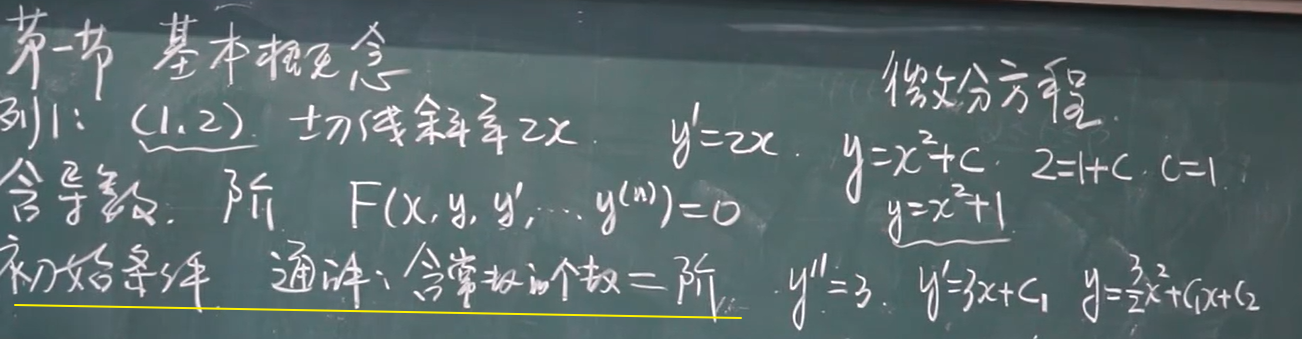 第一节 基本概念
微分方程.
例1: (1,2). 切线斜率2x. y'=2x. y=x²+C. 2=1+C. C=1.
含导数. 阶 F(x,y,y',…y⁽ⁿ⁾)=0 y=x²+1
初始条件. 通解: 含常数的个数=阶. y''=3. y'=3x+C₁ y=3/2x²+C₁x+C₂